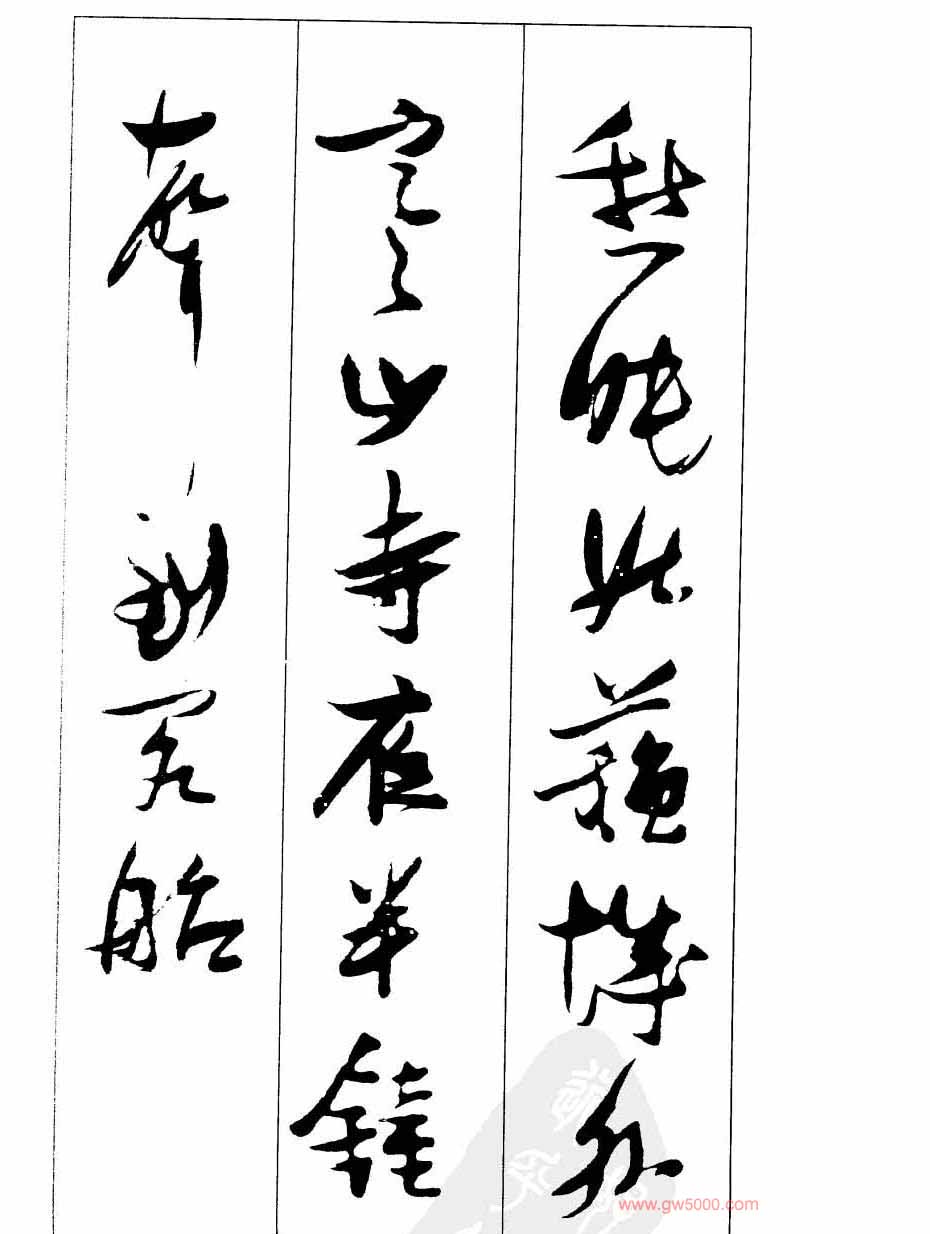 愁眠姑蘇城外
寒山寺夜半鐘
聲到客船
www.gw5000.com